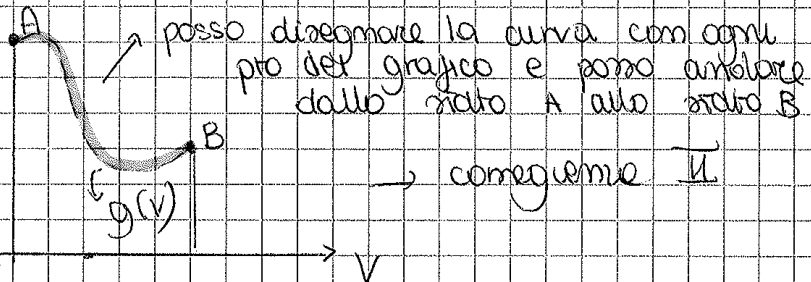 A
posso disegnare la curva con ogni
pto del grafico e posso andare
dallo stato A allo stato B
B
→ conseguenze II
g(V)
V